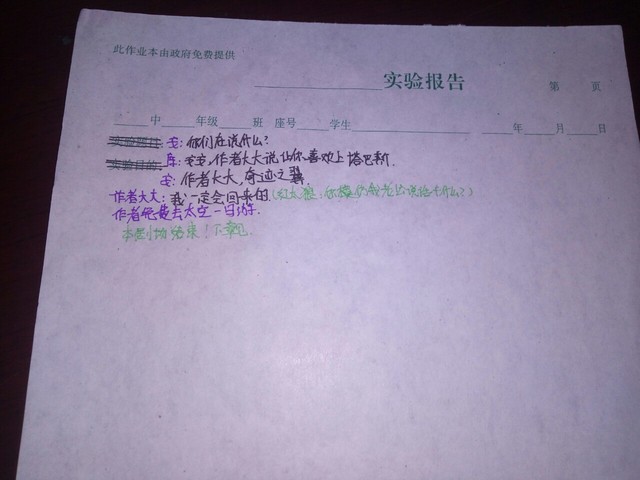 此作业本由政府免费提供
实验报告 第 页
中 年级 班 座号 学生 年 月 日
安:你们在说什么?
库:安安,作者大大说让你喜欢上塔巴斯.
安:作者大大,奇迹之翼.
作者大大:我一定会回来的.(灰太狼:你模仿我光说啥什么?)
作者免费去太空一日游.
本剧场结束!下章见.